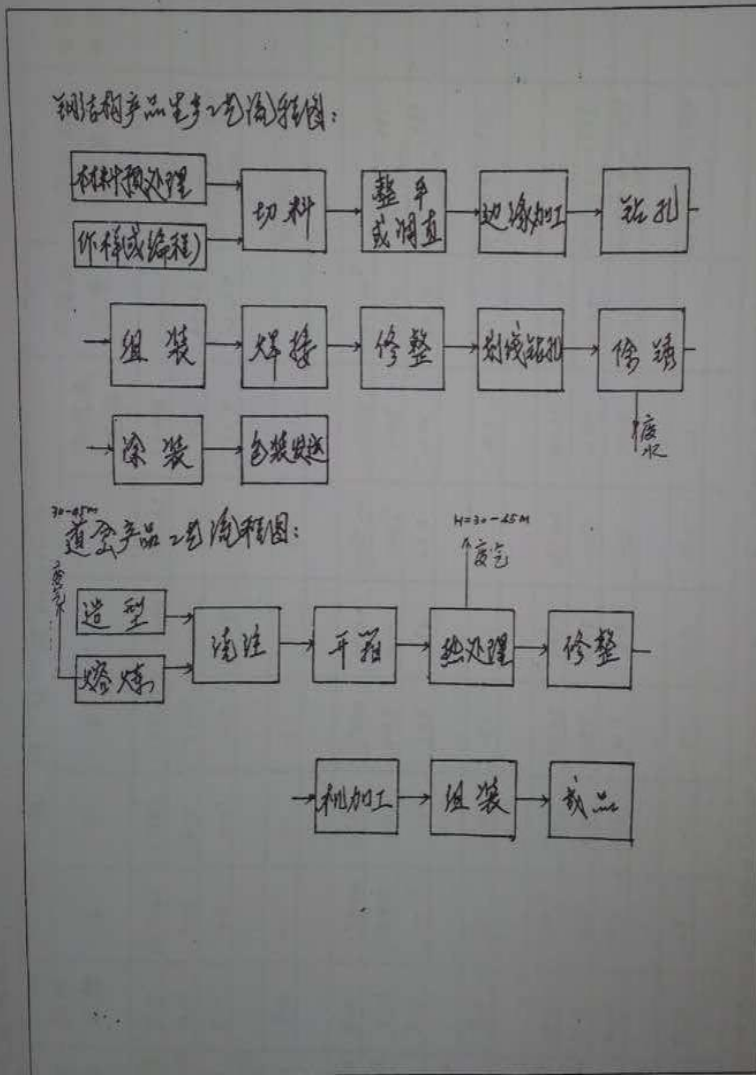 钢结构产品生产工艺流程图：
材料预处理
作样(或编程)
切料
整平
或调直
边缘加工
钻孔
组装
焊接
修整
划线钻孔
除锈
废水
涂装
包装发送
30-45m
道岔产品工艺流程图：
H=30-45M
废气
废气
造型
熔炼
浇注
开箱
热处理
修整
机加工
组装
成品